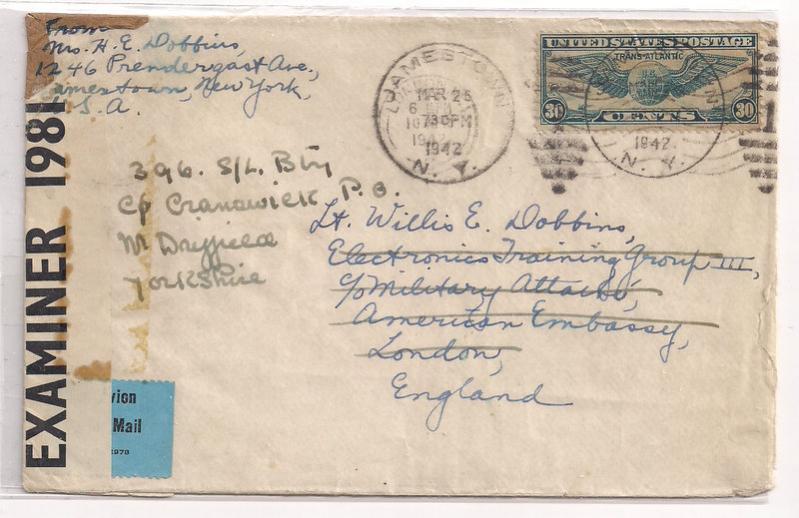 From
Mrs. H. E. Dobbins,
1246 Prendergast Ave.,
Jamestown, New York,
U.S.A.
JAMESTOWN
MAR 25
730PM
1942
N. Y.
UNITED STATES POSTAGE
TRANS-ATLANTIC
30 CENTS 30
1942
N. Y.
396. S/L. Bty
C/o Cranswick P.O.
Nr Dryffield
Yorkshire
Lt. Willis E. Dobbins,
Electronics Training Group III,
c/o Military Attaché,
American Embassy,
London,
England
EXAMINER 1981
vion
Mail
1978